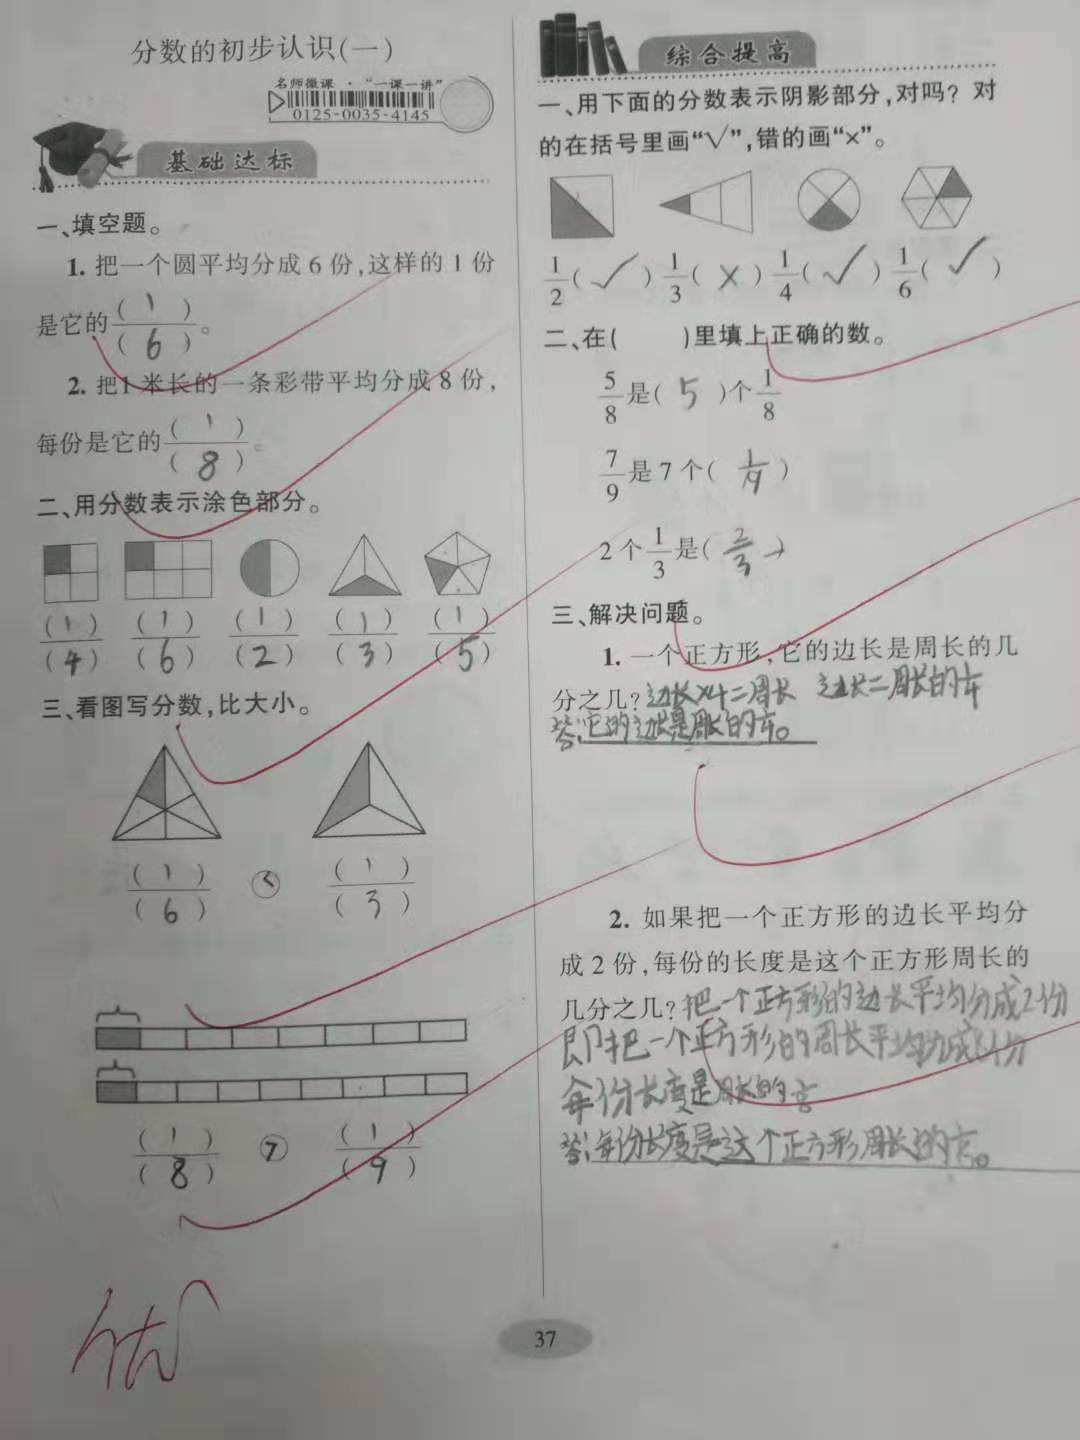 分数的初步认识(一)
名师微课·“一课一讲”
0125-0035-4145
基础达标
一、填空题。
1. 把一个圆平均分成6份,这样的1份
是它的(1)/(6)。
2. 把1米长的一条彩带平均分成8份,
每份是它的(1)/(8)。
二、用分数表示涂色部分。
(1)/(4) (1)/(6) (1)/(2) (1)/(3) (1)/(5)
三、看图写分数,比大小。
(1)/(6) < (1)/(3)
(1)/(8) > (1)/(9)
优
综合提高
一、用下面的分数表示阴影部分,对吗?对
的在括号里画“√”,错的画“×”。
1/2(✓) 1/3(×) 1/4(✓) 1/6(✓)
二、在( )里填上正确的数。
5/8是(5)个1/8
7/9是7个(1/9)
2个1/3是(2/3)
三、解决问题。
1. 一个正方形,它的边长是周长的几
分之几?边长×4=周长 边长=周长的1/4
答:它的边长是周长的1/4。
2. 如果把一个正方形的边长平均分
成2份,每份的长度是这个正方形周长的
几分之几?把一个正方形的边长平均分成2份
即把一个正方形的周长平均分成8份
每份长度是周长的1/8
答:每份长度是这个正方形周长的1/8。
37